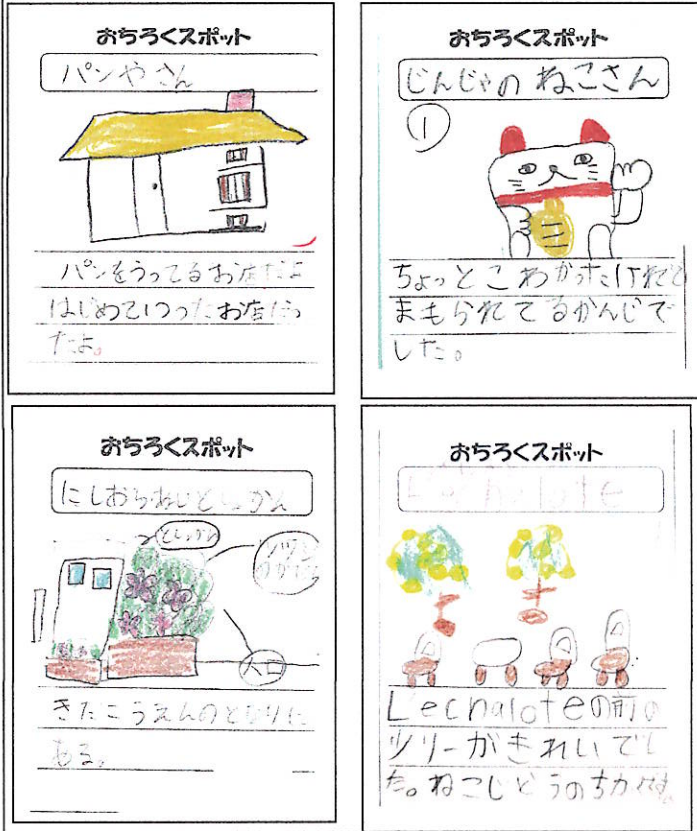 おちろくスポット
パンやさん
パンをうってるお店だよ
はじめていったお店だっ
たよ。
おちろくスポット
じんじゃの ねこさん
1
ちょっとこわかったけれど
まもられてるかんじで
した。
おちろくスポット
としょかん
入口
きたこうえんのとなりに
ある。
おちろくスポット
Lechalote
Lechaloteの前の
ツリーがきれいでし
た。ねこじどうのちかくです。